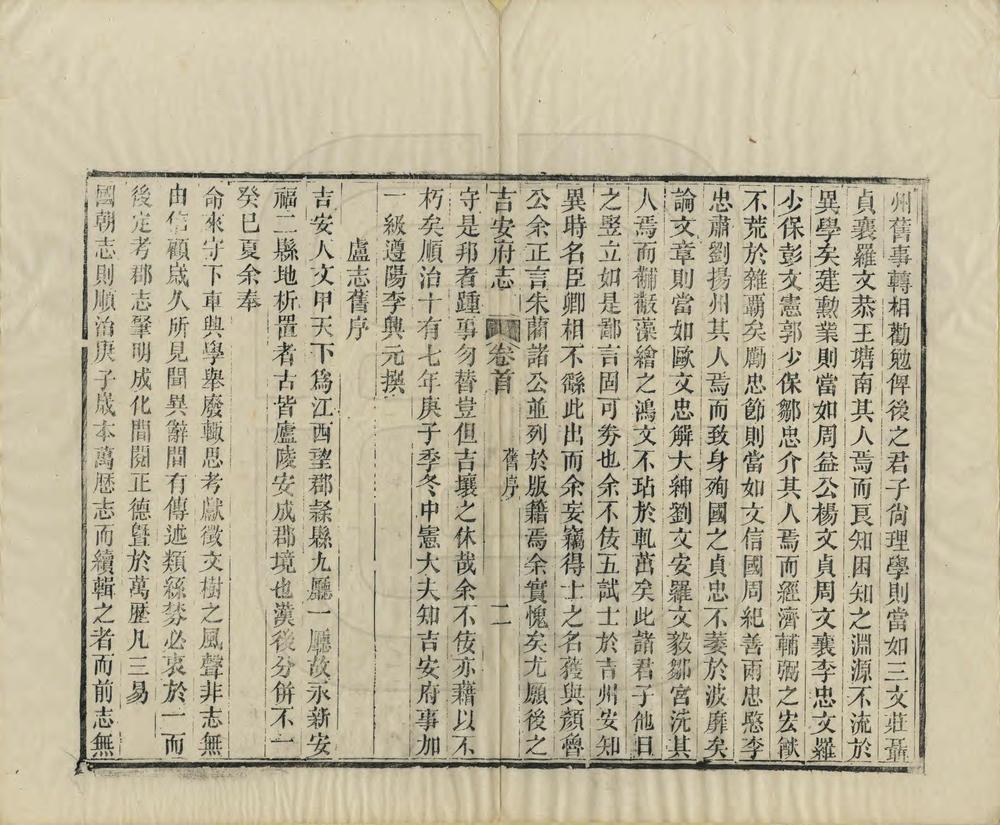 州舊事轉相勸勉俾後之君子尙理學則當如三文莊聶
貞襄羅文恭王塘南其人焉而良知困知之淵源不流於
異學矣建勲業則當如周益公楊文貞周文襄李忠文羅
少保彭文憲郭少保鄒忠介其人焉而經濟輔弼之宏猷
不荒於雜霸矣勵忠節則當如文信國周紀善雨忠愍李
忠肅劉揚州其人焉而致身殉國之貞忠不萎於波靡矣
論文章則當如歐文忠解大紳劉文安羅文毅鄒宮洗其
人焉而黼黻藻繪之鴻文不玷於軋茁矣此諸君子他日
之竪立如是鄙言固可券也余不佞五試士於吉州安知
異時名臣卿相不繇此出而余妄竊得士之名獲與顏魯
公余正言朱藺諸公並列於版籍焉余實愧矣尤願後之
吉安府志 卷首 舊序 二
守是邦者踵事勿替豈但吉壤之休哉余不佞亦藉以不
朽矣順治十有七年庚子季冬中憲大夫知吉安府事加
一級遵陽李興元撰
盧志舊序
吉安人文甲天下爲江西望郡隸縣九廳一廳故永新安
福二縣地析置者古皆廬陵安成郡境也漢後分併不一
癸巳夏余奉
命來守下車興學舉廢輒思考獻徵文樹之風聲非志無
由信顧歲久所見聞異辭間有傳述類絲棼必衷於一而
後定考郡志肇明成化間閱正德曁於萬歷凡三易
國朝志則順治庚子歲本萬歷志而續輯之者而前志無